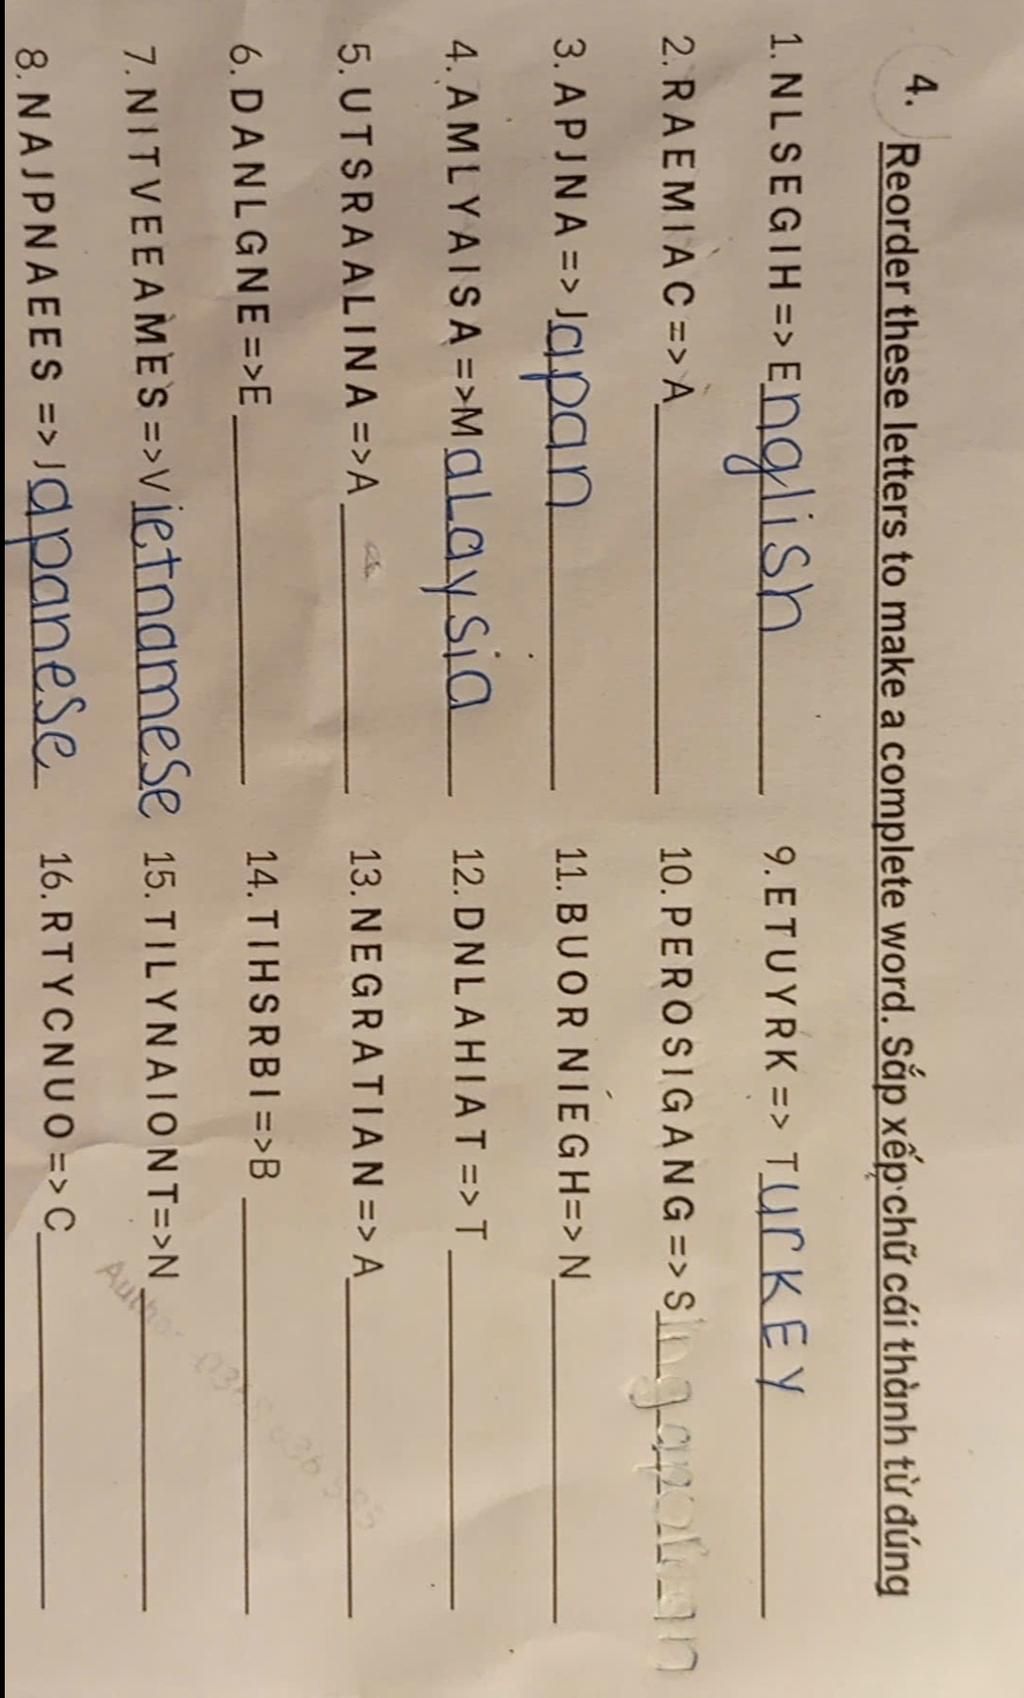 4. Reorder these letters to make a complete word. Sắp xếp chữ cái thành từ đúng
1. N L S E G I H => English
2. R A E M I A C => A
3. A P J N A => Japan
4. A M L Y A I S A => MaLaysia
5. U T S R A A L I N A => A
6. D A N L G N E =>E
7. N I T V E E A M E S =>Vietnamese
8. N A J P N A E E S => Japanese
9. E T U Y R K => TurKEY
10. P E R O S I G A N G => Singaporean
11. B U O R N I E G H=> N
12. D N L A H I A T => T
13. N E G R A T I A N => A
14. T I H S R B I =>B
15. T I L Y N A I O N T=>N
16. R T Y C N U O => C